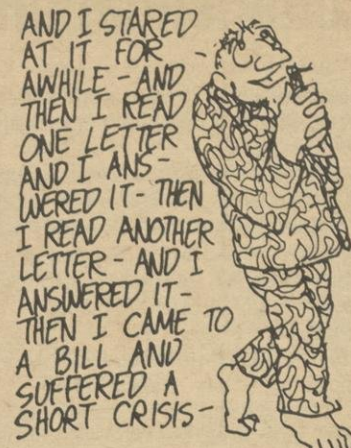 AND I STARED
AT IT FOR
AWHILE - AND
THEN I READ
ONE LETTER
AND I ANS-
WERED IT - THEN
I READ ANOTHER
LETTER - AND I
ANSWERED IT -
THEN I CAME TO
A BILL AND
SUFFERED A
SHORT CRISIS -